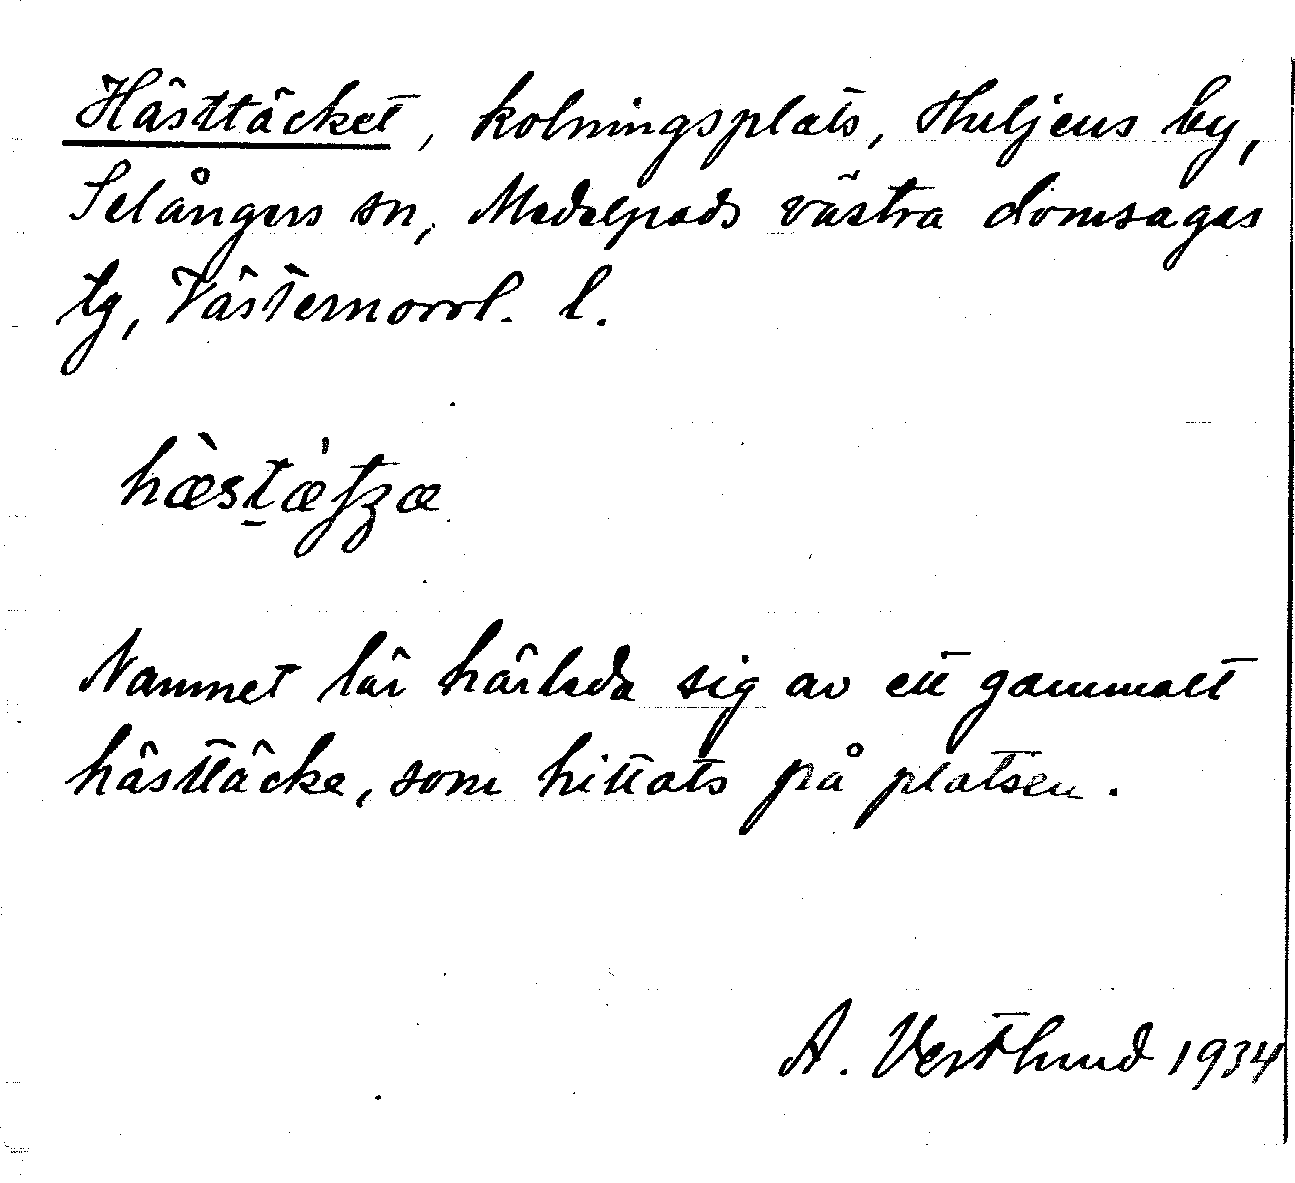 Hästtäcket, kolningsplats, Huljens by,
Selångers sn, Medelpads västra domsagas
tg, Västernorrl. l.
hæ̀st̠æ̍ʃʒæ
Namnet lär härleda sig av ett gammalt
hästtäcke, som hittats på platsen.
A. Vestlund 1934